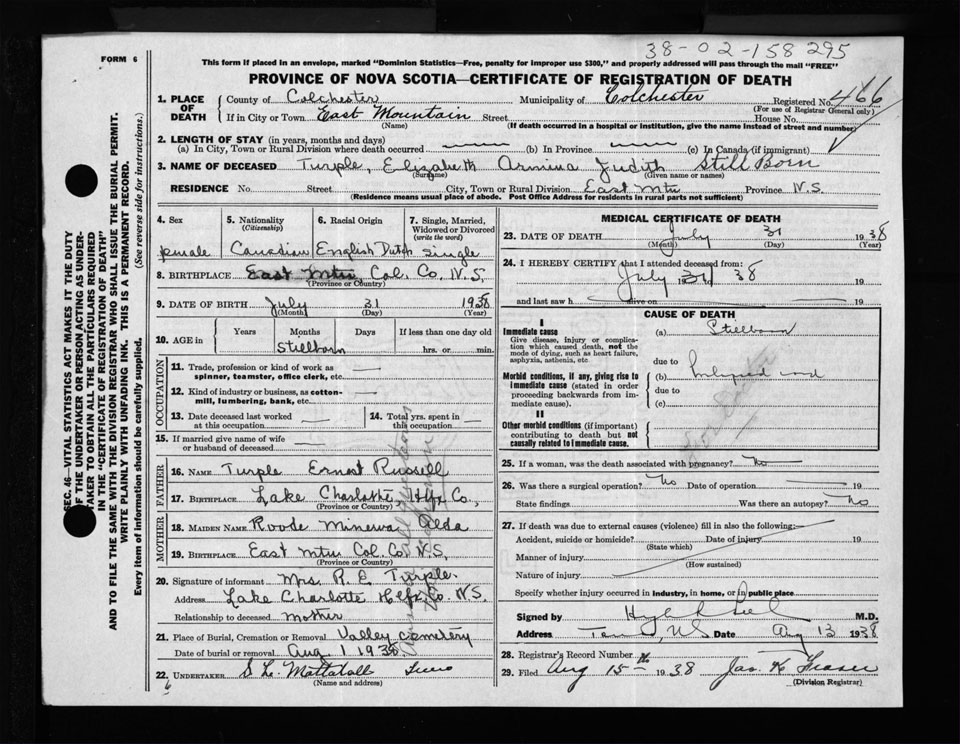 38-02-158295
FORM 6
This form if placed in an envelope, marked "Dominion Statistics—Free, penalty for improper use $300," and properly addressed will pass through the mail "FREE"
PROVINCE OF NOVA SCOTIA—CERTIFICATE OF REGISTRATION OF DEATH
1. PLACE OF DEATH County of Colchester Municipality of Colchester Registered No. 466
(For use of Registrar General only)
If in City or Town East Mountain Street House No.
(Name) (If death occurred in a hospital or institution, give the name instead of street and number)
2. LENGTH OF STAY (in years, months and days)
(a) In City, Town or Rural Division where death occurred (b) In Province (c) In Canada (if immigrant)
3. NAME OF DECEASED Turple, Elizabeth Armina Judith Still Born
(Surname) (Given name or names)
RESIDENCE No. Street City, Town or Rural Division East Mtn Province N.S.
(Residence means usual place of abode. Post Office Address for residents in rural parts not sufficient)
4. Sex 5. Nationality (Citizenship) 6. Racial Origin 7. Single, Married, Widowed or Divorced (write the word)
female Canadian English Dutch Single
8. BIRTHPLACE East Mtn Col. Co. N.S.
(Province or Country)
9. DATE OF BIRTH July 31 1938
(Month) (Day) (Year)
10. AGE in Years Months Days If less than one day old
Stillborn hrs. or min.
OCCUPATION
11. Trade, profession or kind of work as spinner, teamster, office clerk, etc. —
12. Kind of industry or business, as cotton-mill, lumbering, bank, etc. —
13. Date deceased last worked at this occupation — 14. Total yrs. spent in this occupation —
15. If married give name of wife or husband of deceased —
FATHER
16. NAME Turple Ernest Russell
17. BIRTHPLACE Lake Charlotte Hfx Co.
(Province or Country)
MOTHER
18. MAIDEN NAME Roode Minerva Alda
19. BIRTHPLACE East Mtn Col. Co. N.S.
(Province or Country)
20. Signature of informant Mrs. R. E. Turple
Address Lake Charlotte Hfx Co. N.S.
Relationship to deceased mother
21. Place of Burial, Cremation or Removal Valley Cemetery
Date of burial or removal Aug 1 1938
22. UNDERTAKER S L Mattatall Truro
(Name and address)
MEDICAL CERTIFICATE OF DEATH
23. DATE OF DEATH July 31 1938
(Month) (Day) (Year)
24. I HEREBY CERTIFY that I attended deceased from:
July 31 38 19
and last saw h alive on 19
CAUSE OF DEATH
I
Immediate cause (a) Stillborn
Give disease, injury or complication which caused death, not the mode of dying, such as heart failure, asphyxia, asthenia, etc.
due to
Morbid conditions, if any, giving rise to immediate cause (stated in order proceeding backwards from immediate cause). (b)
due to
(c)
II
Other morbid conditions (if important) contributing to death but not causally related to immediate cause.
25. If a woman, was the death associated with pregnancy? No
26. Was there a surgical operation? No Date of operation — 19
State findings Was there an autopsy? No
27. If death was due to external causes (violence) fill in also the following:—
Accident, suicide or homicide? Date of injury 19
(State which)
Manner of injury
(How sustained)
Nature of injury
Specify whether injury occurred in industry, in home, or in public place
Signed by M.D.
Address Date Aug 13 1938
28. Registrar's Record Number
29. Filed Aug 15th 1938 Jas. K. Fraser
(Division Registrar)
SEC. 46—VITAL STATISTICS ACT MAKES IT THE DUTY
OF THE UNDERTAKER OR PERSON ACTING AS UNDER-
TAKER TO OBTAIN ALL THE PARTICULARS REQUIRED
IN THE "CERTIFICATE OF REGISTRATION OF DEATH"
AND TO FILE THE SAME WITH THE DIVISION REGISTRAR WHO SHALL ISSUE THE BURIAL PERMIT.
WRITE PLAINLY WITH UNFADING INK. THIS IS A PERMANENT RECORD.
Every item of information should be carefully supplied. (See reverse side for instructions.)